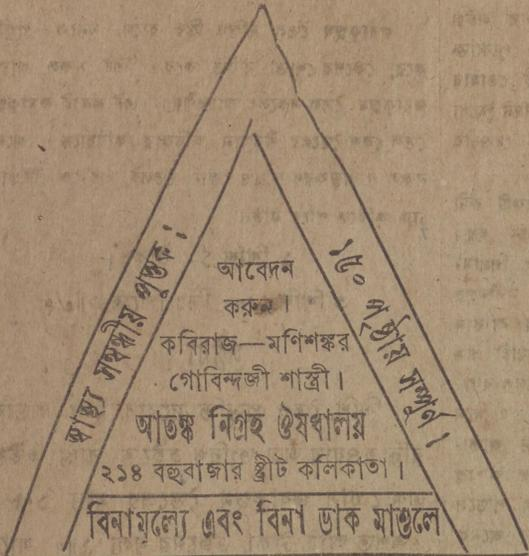 স্বাস্থ্য সম্বন্ধীয় পুস্তক।
পৃষ্ঠায় সম্পূর্ণ।
আবেদন
করুন।
কবিরাজ—মণিশঙ্কর
গোবিন্দজী শাস্ত্রী।
আতঙ্ক নিগ্রহ ঔষধালয়
২১৪ বহুবাজার ষ্ট্রীট কলিকাতা।
বিনামূল্যে এবং বিনা ডাক মাশুলে